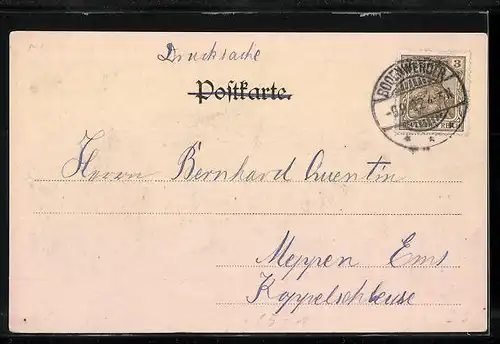 Drucksache
Postkarte.
3
BODENWERDER
Herrn Bernhard Quentin
Meppen Ems
Koppelschleuse